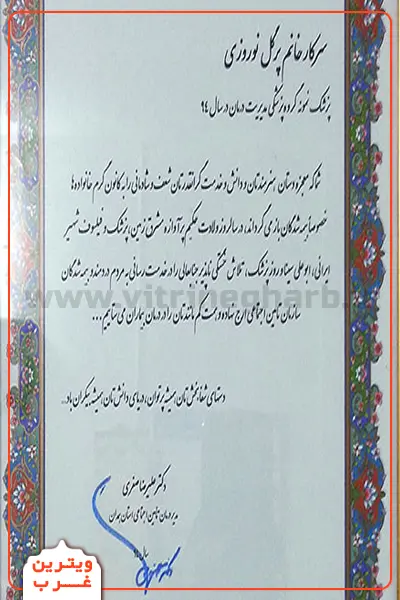 سرکار خانم پرگل نوروزی
پزشک نمونه گروه پزشکی مدیریت درمان در سال ۹۴
شما که معجزه دستان هنرمندتان و دانش و خدمت گرانقدرتان شعف و شادمانی را به کانون گرم خانواده ها
خصوصاً بیمه شدگان بازمی گرداند، در سالروز ولادت حکیم پرآوازه مشرق زمین، پزشک و فیلسوف شهیر
ایرانی، ابوعلی سینا و روز پزشک، تلاش خستگی ناپذیر جنابعالی را در خدمت رسانی به مردم دردمند و بیمه شدگان
سازمان تأمین اجتماعی ارج نهاده و همت گم مانندتان را در درمان بیماران می ستاییم...
دستهای شفابخش تان همیشه پرتوان، دریای دانش تان همیشه بیکران باد...
دکتر علیرضا صفری
مدیر درمان تأمین اجتماعی استان همدان
www.vitrinegharb.ir
ویترین
غرب